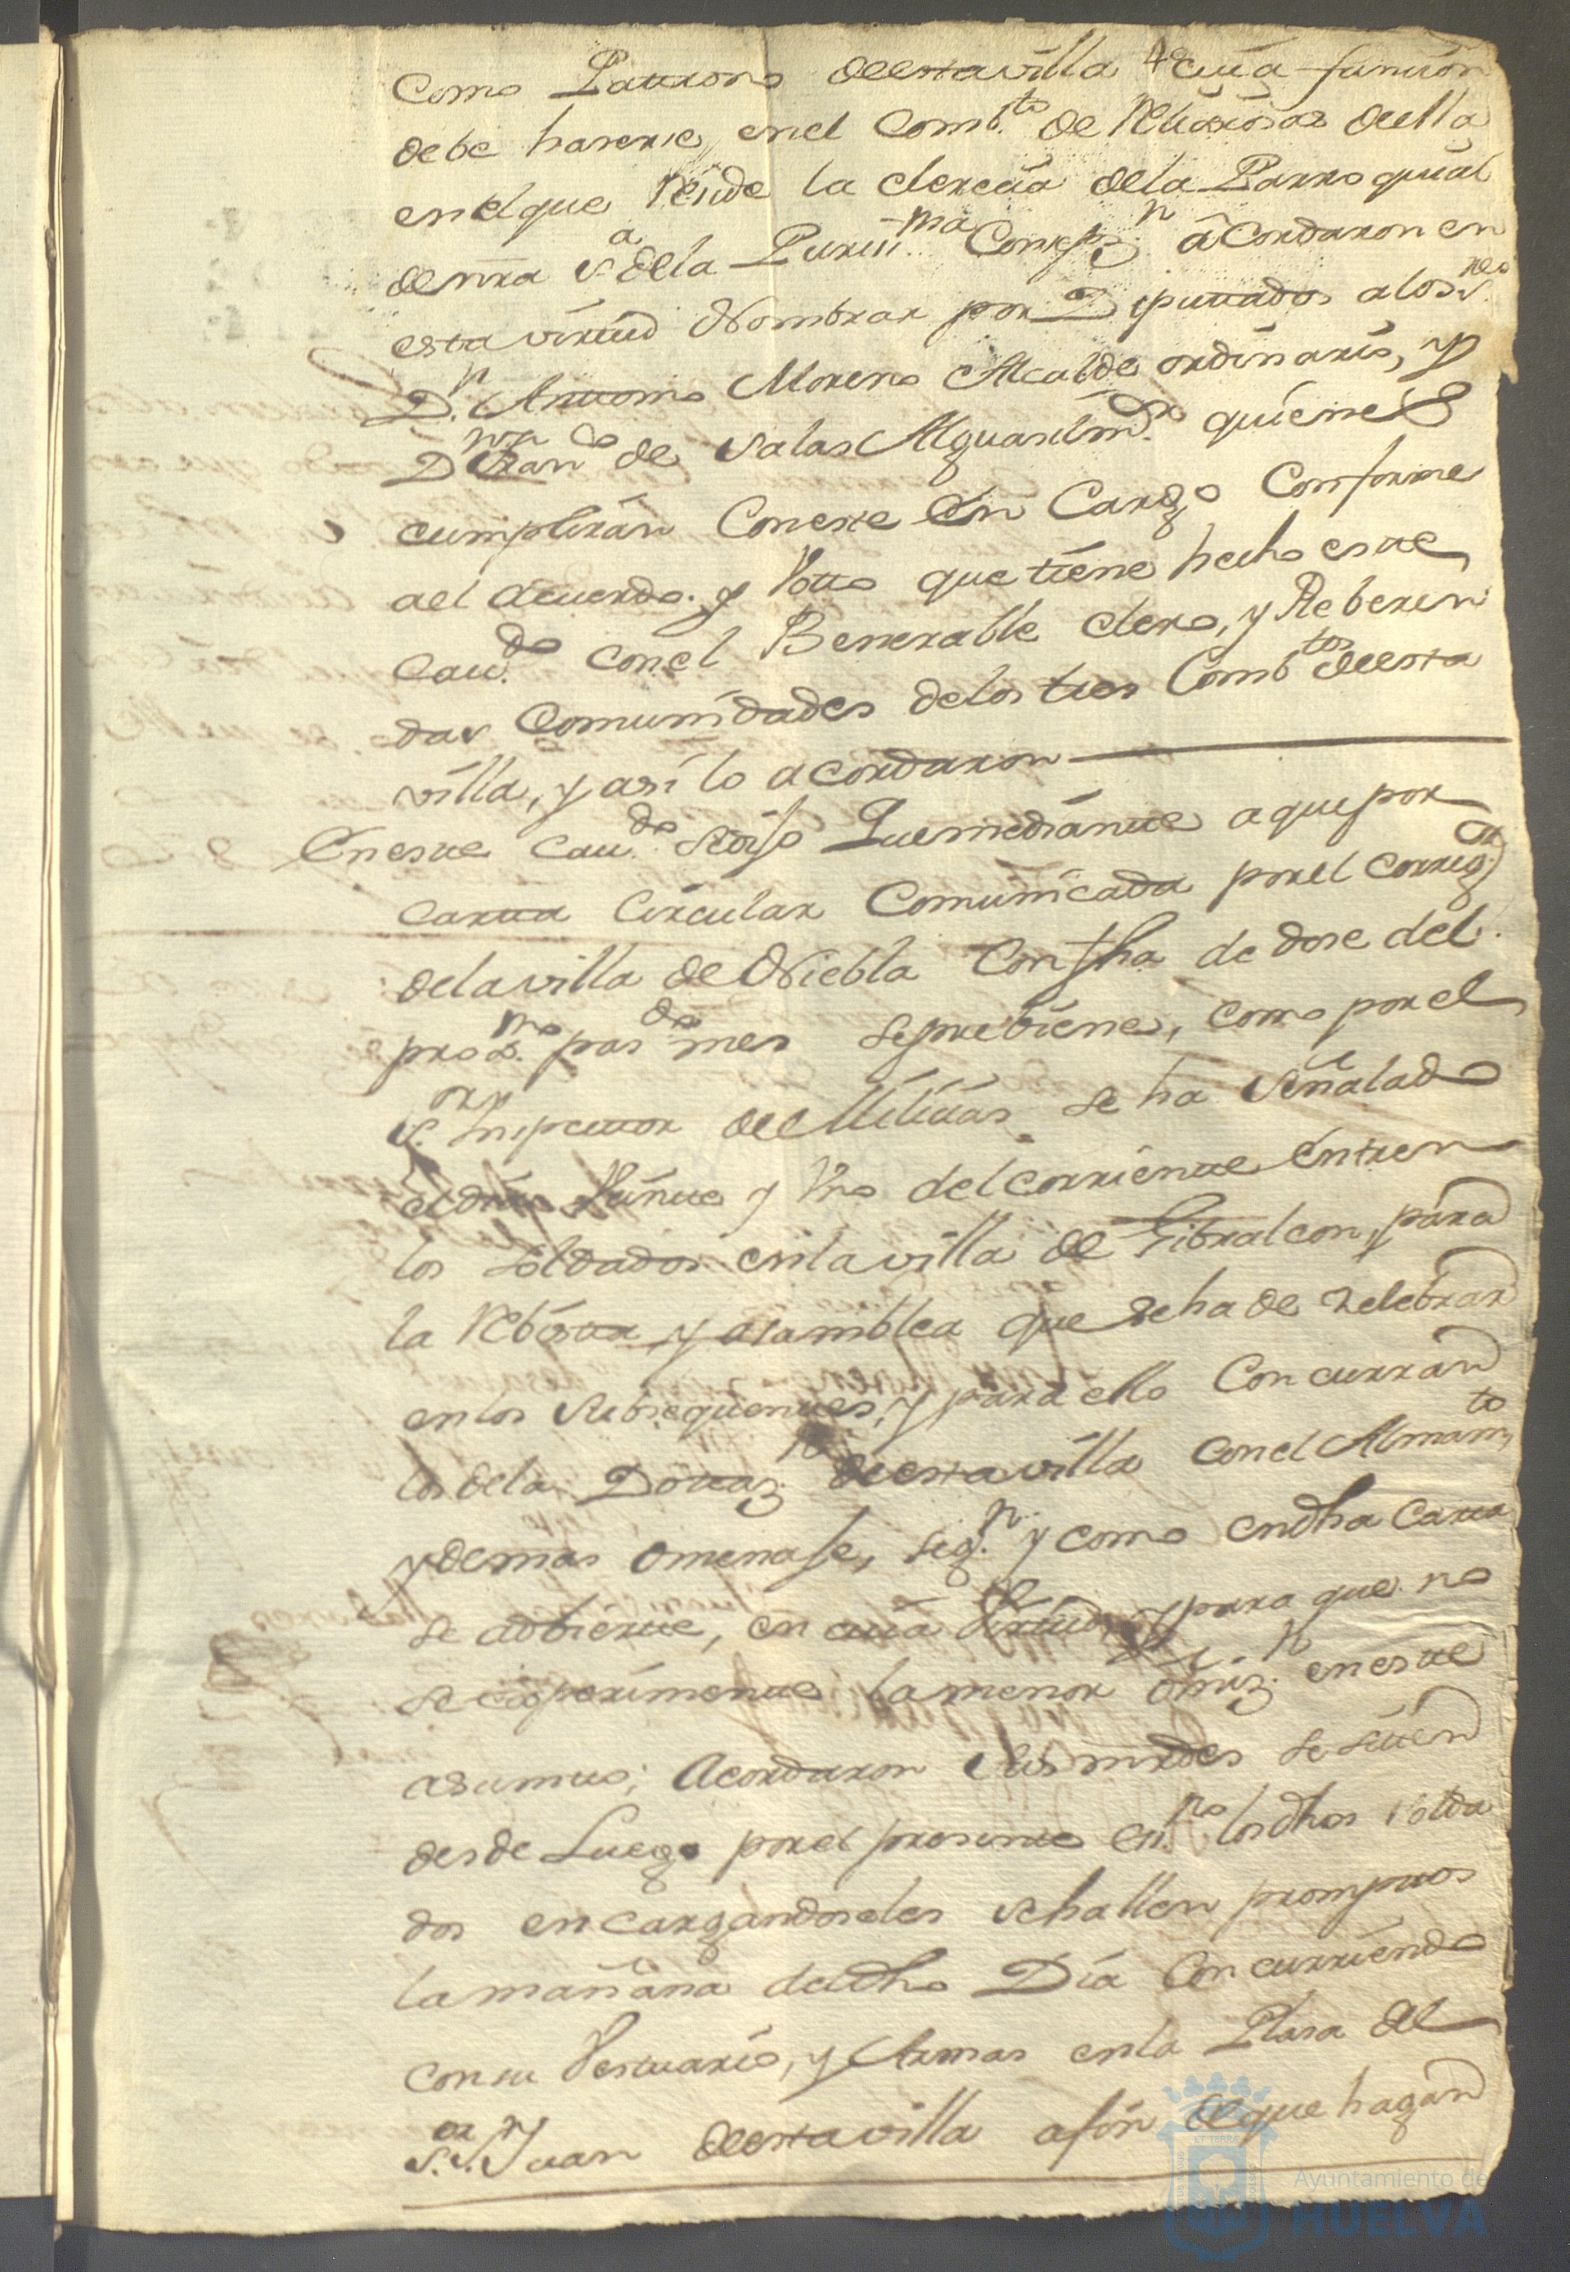 Como Pattrono deestavilla cuia funcion
debe haserse, enel Comb.to de Religiosas deella
enelque reside la clerecia dela Parroquial
denra S.a dela Puriss.ma Consepz.n acordaron en
esta virtud Nombrar por Diputtados alos S.res
D.n Anttonio Moreno Alcalde ordinario, y
D.n Fran.co de Salas Alguasil m.or quienes
cumplirán Coneste En Cargo Conforme
ael Acuerdo. y Votto que tiene hecho este
Cav.do conel Benerable clero, y Reberen
das Comunidades delos tres Comb.tos deesta
villa, y así lo acordaron
Eneste Cav.do sedijo Quemediante aquepor
Cartta Circular Comunicada porel Correg.or
delavilla de Niebla Con fha de dose del
prox.mo pas.do mes seprebiene, como porel
S.or Inspecttor deMilicias se ha Señalado
eldia Vainte y Vno delcorriente Entren
los Soldados enlavilla de Gibraleon, para
la Rebistta y asamblea que seha de zelebrar
enlos Subseqüentes, y para ello Concurran
los dela Dottaz.n deestavilla conel Armam.to
y demas omenaje, seg.n y como endha Cartta
se adbierte, en cuia Virtud, y para que no
se experimente lamenor omis.n eneste
asumto; Acordaron Sus mrdes se sitten
desde Luego porel presente es.no losdhos Solda
dos encargandoseles sehallen promptos
lamañana deldho Dia Concurriendo
consu Vestuario, y Armas enla Plasa del
S.or S.n Juan deestavilla afin deque hagan
Ayuntamiento de
HUELVA